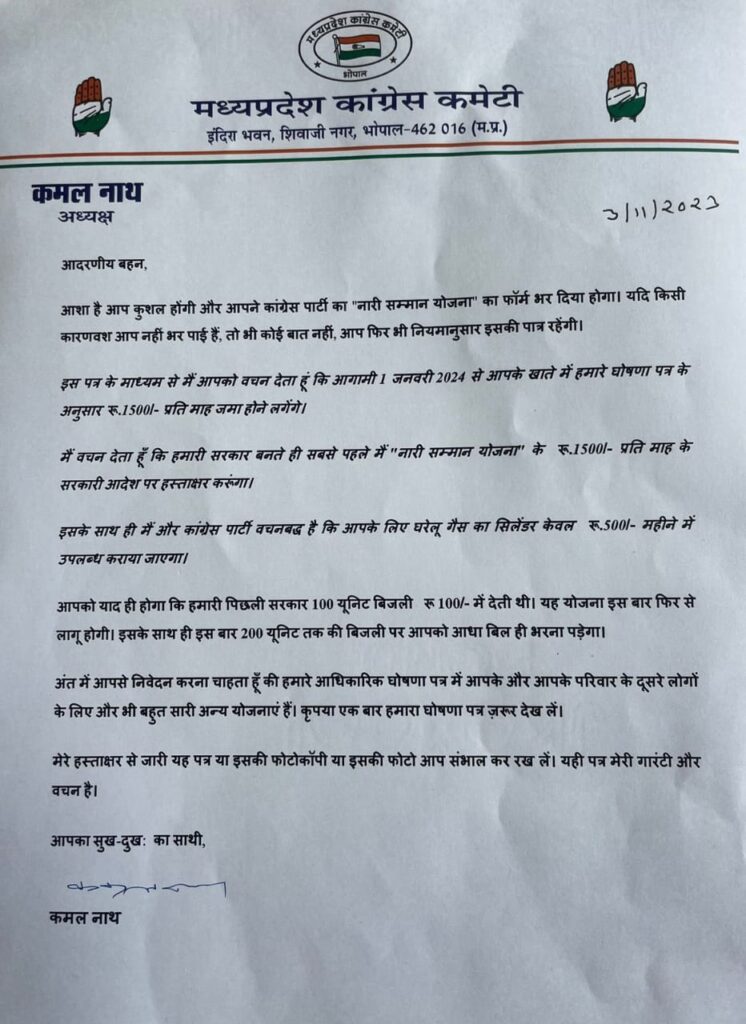 मध्यप्रदेश कांग्रेस कमेटी
भोपाल
मध्यप्रदेश कांग्रेस कमेटी
इंदिरा भवन, शिवाजी नगर, भोपाल-462 016 (म.प्र.)
कमल नाथ
अध्यक्ष
3/11/2023
आदरणीय बहन,
आशा है आप कुशल होंगी और आपने कांग्रेस पार्टी का "नारी सम्मान योजना" का फॉर्म भर दिया होगा। यदि किसी
कारणवश आप नहीं भर पाई हैं, तो भी कोई बात नहीं, आप फिर भी नियमानुसार इसकी पात्र रहेंगी।
इस पत्र के माध्यम से मैं आपको वचन देता हूं कि आगामी 1 जनवरी 2024 से आपके खाते में हमारे घोषणा पत्र के
अनुसार रू.1500/- प्रति माह जमा होने लगेंगे।
मैं वचन देता हूँ कि हमारी सरकार बनते ही सबसे पहले मैं "नारी सम्मान योजना" के रू.1500/- प्रति माह के
सरकारी आदेश पर हस्ताक्षर करूंगा।
इसके साथ ही मैं और कांग्रेस पार्टी वचनबद्ध है कि आपके लिए घरेलू गैस का सिलेंडर केवल रू.500/- महीने में
उपलब्ध कराया जाएगा।
आपको याद ही होगा कि हमारी पिछली सरकार 100 यूनिट बिजली रू 100/- में देती थी। यह योजना इस बार फिर से
लागू होगी। इसके साथ ही इस बार 200 यूनिट तक की बिजली पर आपको आधा बिल ही भरना पड़ेगा।
अंत में आपसे निवेदन करना चाहता हूँ की हमारे आधिकारिक घोषणा पत्र में आपके और आपके परिवार के दूसरे लोगों
के लिए और भी बहुत सारी अन्य योजनाएं हैं। कृपया एक बार हमारा घोषणा पत्र ज़रूर देख लें।
मेरे हस्ताक्षर से जारी यह पत्र या इसकी फोटोकॉपी या इसकी फोटो आप संभाल कर रख लें। यही पत्र मेरी गारंटी और
वचन है।
आपका सुख-दुख: का साथी,
कमल नाथ